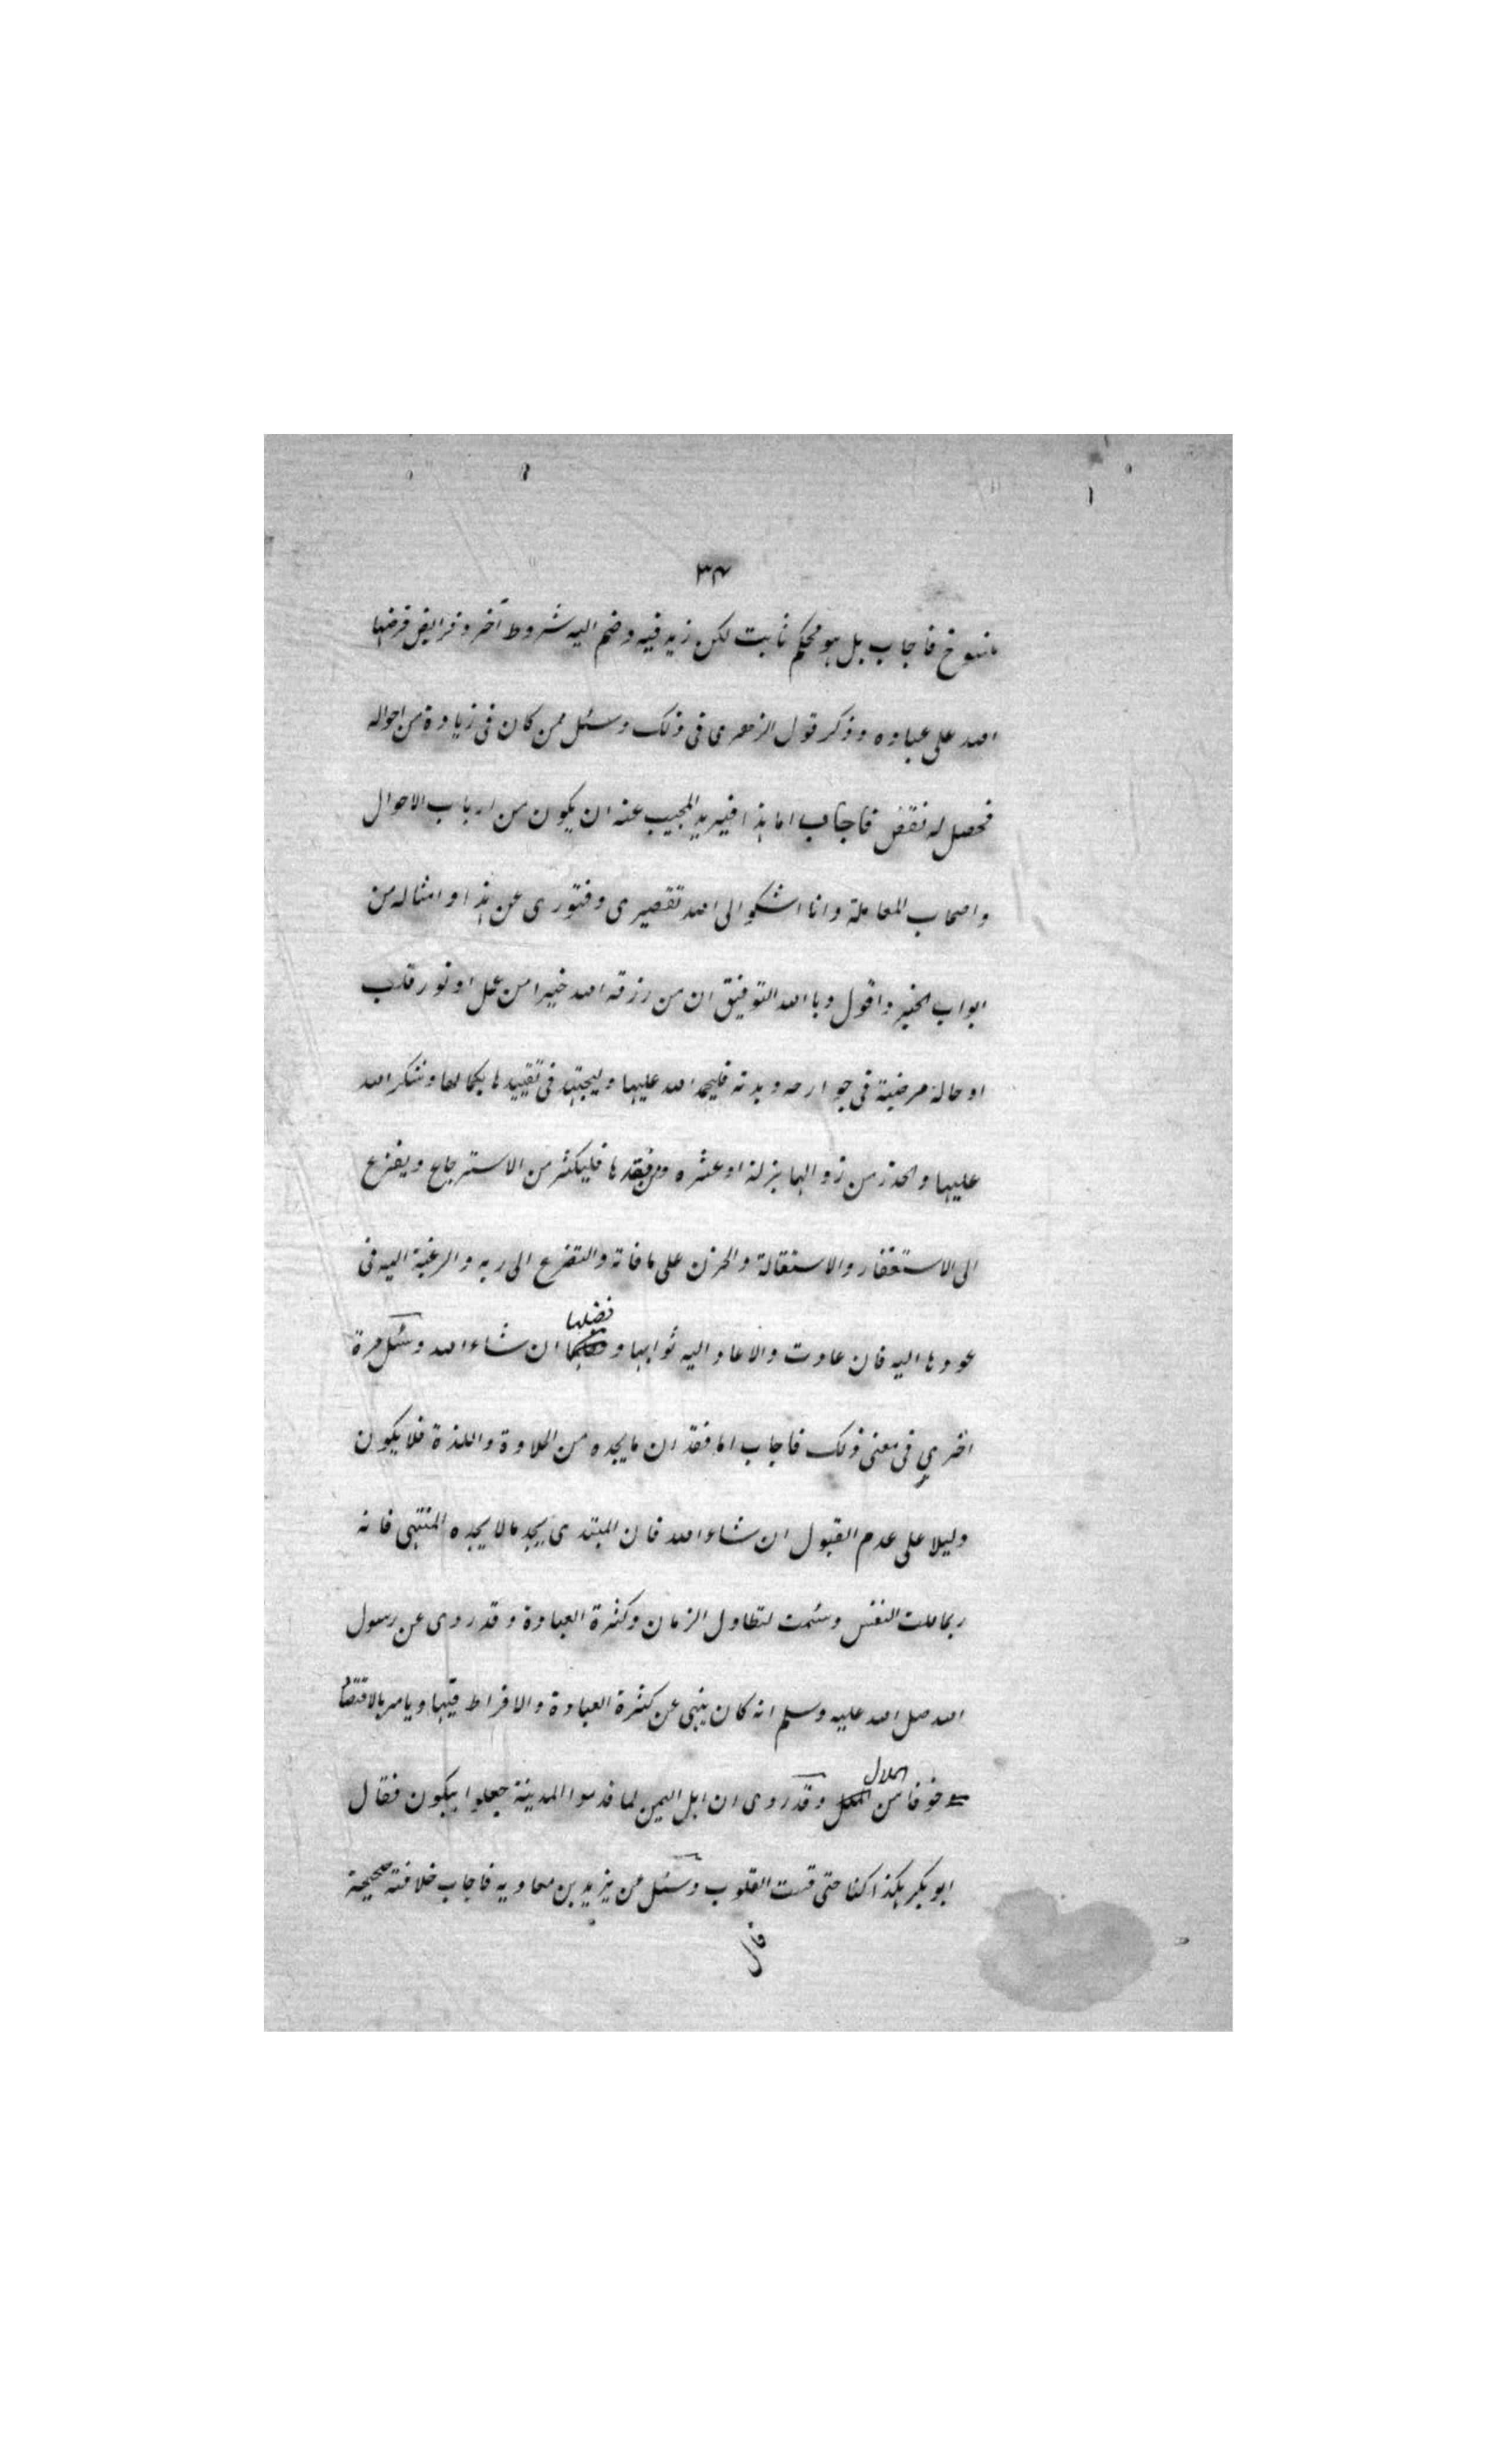 ٣٤
منسوخ فاجاب بل هو محكم ثابت لكن زيد فيه وضم اليه شروط آخر وفرايض فرضها
الله على عباده وذكر قول الزهرى فى ذلك وسئل ممن كان فى زيادة من احواله
فحصل له نقض فاجاب اما هذا فيريد المجيب عنه ان يكون من ارباب الاحوال
واصحاب المعاملة وانا اشكو الى الله تقصيرى وفتورى عن هذا وامثاله من
ابواب الخير واقول وبا الله التوفيق ان من رزقه الله خيرا من عمل او نور قلب
او حالة مرضية فى جوارحه وبدنه فليحمد الله عليها وليجتهد فى تقييدها بكمالها وشكر الله
عليها والحذر من زوالها بزلة او عثره ومن فقدها فليكثر من الاسترجاع ويفزع
الى الاستغفار والاستقالة والحزن على ما فاته والتضرع الى ربه والرغبة اليه فى
عودها اليه فان عادت والا عاد اليه ثوابها و فضلها ان شاء الله وسئل مرة
اخرى فى معنى ذلك فاجاب اما فقدان ما يجده من الحلاوة واللذة فلا يكون
دليلا على عدم القبول ان شاء الله فان المبتدى يجد ما لا يجده المنتهى فانه
ربما ملت النفس وسئمت لتطاول الزمان وكثرة العبادة وقد روى عن رسول
الله صل الله عليه وسلم انه كان ينهى عن كثرة العبادة والافراط فيها ويامر بالاقتصاد
خوفا من الملال وقد روى ان اهل اليمن لما قدموا المدينة جعلوا يبكون فقال
ابو بكر هكذا كنا حتى قست القلوب وسئل عن يزيد بن معاويه فاجاب خلافته صحيحة
قال